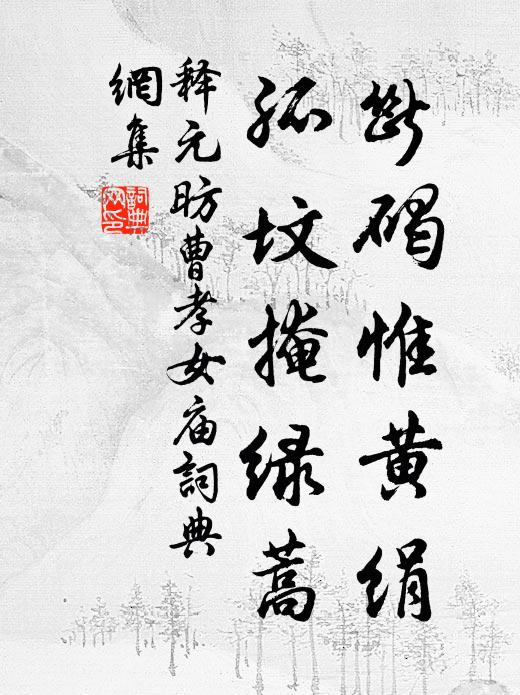 断碣惟黄绢
孤坟掩绿蒿
释元昉曹孝女庙詞典
網集
詞典
网印